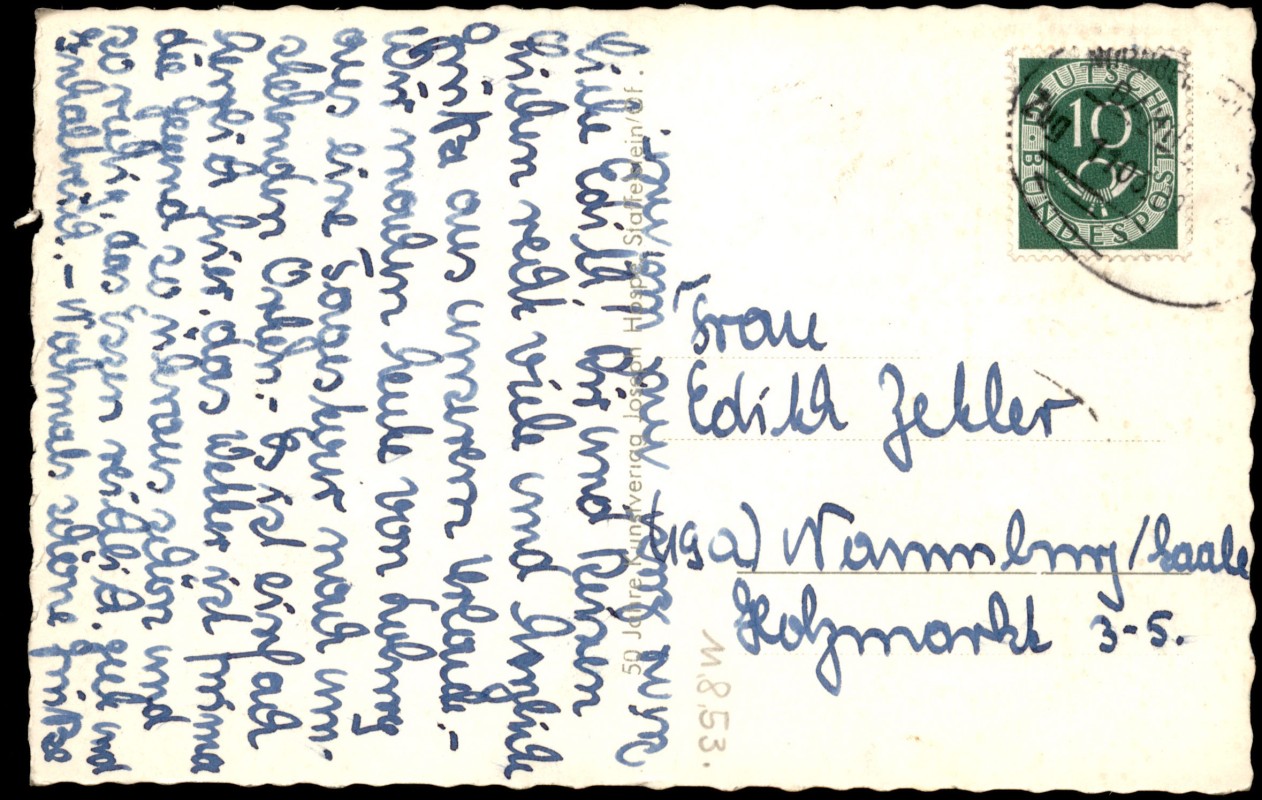 Liebe Edith! Dir und Deinen
Lieben recht viele und herzliche
Grüße aus unserem Urlaub. -
Wir machen heute von
aus eine Tagestour nach um-
Orten. - Es ist einfach
herrlich hier, das Wetter ist prima
die Gegend so überaus schön und
so ruhig, das Essen reichlich, gut und
- Nochmals schöne Grüße
50 Jahre Kunstverlag Joseph Hospe, Staffelstein/Of.
DEUTSCHE BUNDESPOST
10
Frau
Edith Zekler
(19a) Naumburg/Saale
Holzmarkt 3-5.
11.8.53.